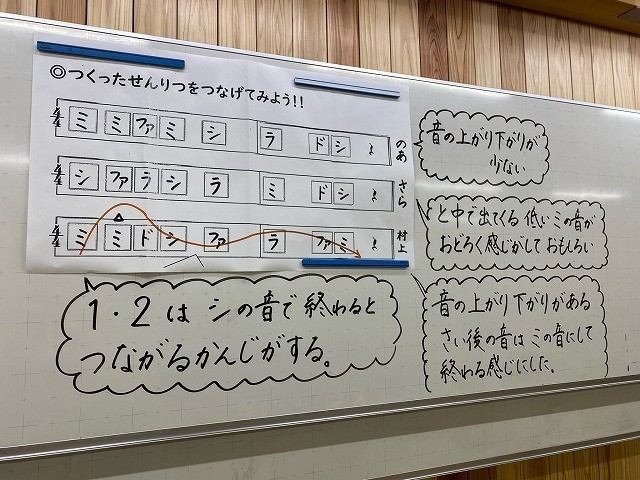 ◎つくったせんりつをつなげてみよう!!
4/4 ミ ミ ファ ミ シ ラ ド シ のあ
4/4 シ ファ ラ シ ラ ミ ド シ さら
4/4 ミ ミ ド シ ファ ラ ファ ミ 村上
音の上がり下がりが
少ない
と中で出てくる 低い ミの音が
おどろく感じがして おもしろい
音の上がり下がりがある
さい後の音は ミの音にして
終わる感じにした。
1・2 は シの音で 終わると
つながるかんじがする。